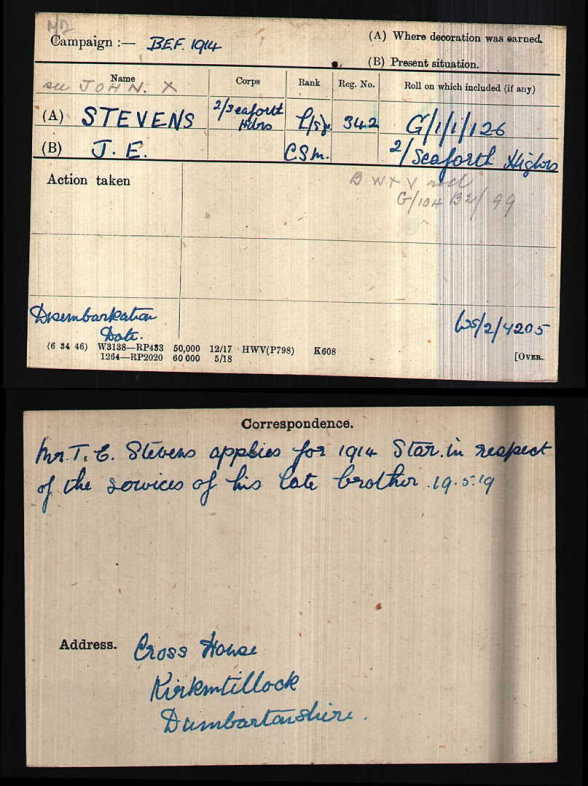 Campaign :— B.E.F. 1914
(A) Where decoration was earned.
(B) Present situation.
Name Corps Rank Reg. No. Roll on which included (if any)
see JOHN. X
(A) STEVENS 2/Seaforth Hldrs L/Sjt 342 G/1/1/126
(B) J. E. C S M. 2/Seaforth Highrs
Action taken
B W & V
G/104 B2/99
Disembarkation
Date.
WS/2/4205
(6 34 46) W3138—RP433 50,000 12/17 HWV(P798) K608
1264—RP2020 60 000 5/18
[OVER.
Correspondence.
Mr T. E. Stevens applies for 1914 Star in respect
of the services of his late brother 19.5.19
Address. Cross House
Kirkintillock
Dumbartonshire.